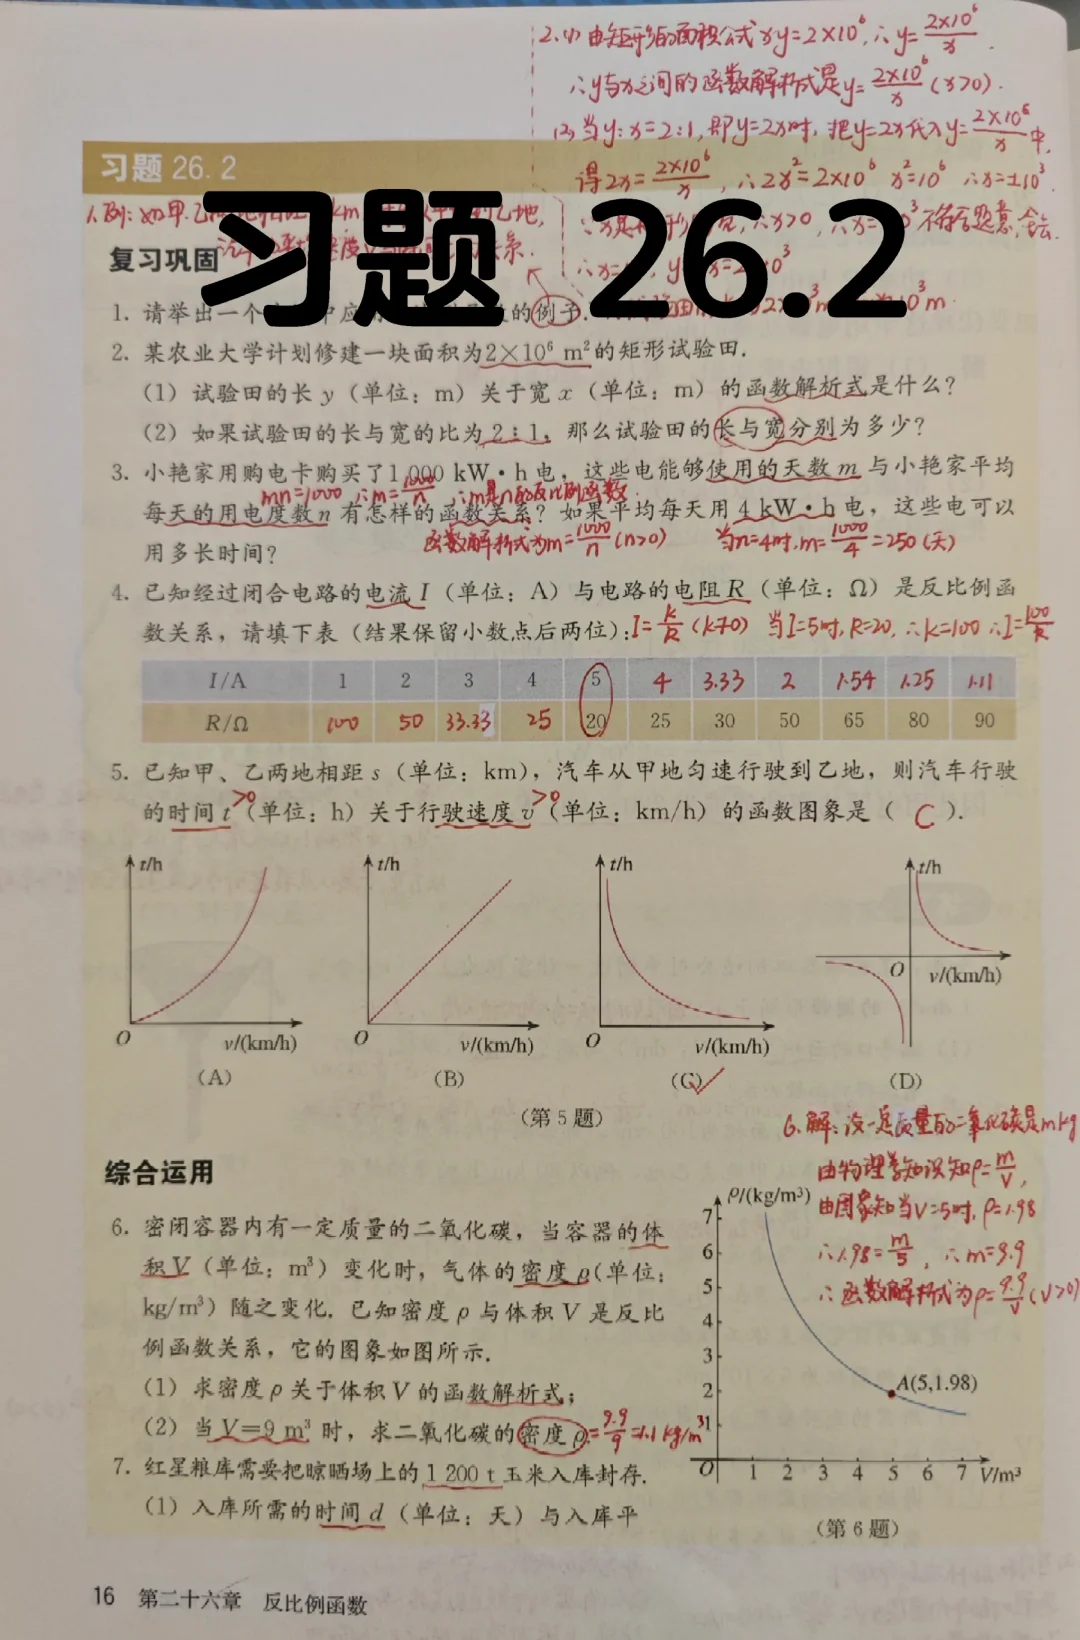 2.(1) 由矩形的面积公式xy=2×10⁶,∴y=2×10⁶/x.
∴y与x之间的函数解析式是y=2×10⁶/x(x>0).
(2)当y:x=2:1,即y=2x时,把y=2x代入y=2×10⁶/x中,
得2x=2×10⁶/x,∴2x²=2×10⁶ x²=10⁶ ∴x=±10³.
习题 26.2
习题 26.2
1.例:如甲.乙
复习巩固
不符合题意,舍去.
1. 请举出一个
的例子.
2. 某农业大学计划修建一块面积为2×10⁶ m²的矩形试验田.
(1) 试验田的长 y(单位:m)关于宽 x(单位:m)的函数解析式是什么?
(2) 如果试验田的长与宽的比为 2:1,那么试验田的长与宽分别为多少?
3. 小艳家用购电卡购买了1 000 kW·h 电,这些电能够使用的天数 m 与小艳家平均
mn=1000 ∴m=1000/n ∴m是n的反比例函数.
每天的用电度数 n 有怎样的函数关系?如果平均每天用 4 kW·h 电,这些电可以
函数解析式为m=1000/n(n>0) 当n=4时,m=1000/4=250(天)
用多长时间?
4. 已知经过闭合电路的电流 I(单位:A)与电路的电阻 R(单位:Ω)是反比例函
数关系,请填下表(结果保留小数点后两位):I=k/R(k≠0) 当I=5时,R=20,∴k=100 ∴I=100/R
I/A 1 2 3 4 5 4 3.33 2 1.54 1.25 1.11
R/Ω 100 50 33.33 25 20 25 30 50 65 80 90
5. 已知甲、乙两地相距 s(单位:km),汽车从甲地匀速行驶到乙地,则汽车行驶
的时间 t>0(单位:h)关于行驶速度 v>0(单位:km/h)的函数图象是( C ).
t/h t/h t/h t/h
O v/(km/h) O v/(km/h) O v/(km/h) O v/(km/h)
(A) (B) (C) (D)
(第 5 题)
6.解:设一定质量的二氧化碳是mkg
综合运用
由物理学知识知ρ=m/V,
由图象知当V=5时,ρ=1.98
∴1.98=m/5,∴m=9.9
∴函数解析式为ρ=9.9/V(V>0)
6. 密闭容器内有一定质量的二氧化碳,当容器的体
积 V(单位:m³)变化时,气体的密度 ρ(单位:
kg/m³)随之变化.已知密度 ρ 与体积 V 是反比
例函数关系,它的图象如图所示.
(1) 求密度 ρ 关于体积 V 的函数解析式;
(2) 当 V=9 m³ 时,求二氧化碳的密度 ρ.=9.9/9=1.1kg/m³
ρ/(kg/m³)
7
6
5
4
3
2
1
A(5,1.98)
O 1 2 3 4 5 6 7 V/m³
(第 6 题)
7. 红星粮库需要把晾晒场上的1 200 t 玉米入库封存.
(1) 入库所需的时间 d(单位:天)与入库平
16 第二十六章 反比例函数